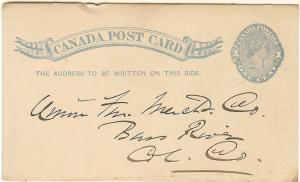 CANADA POST CARD
THE ADDRESS TO BE WRITTEN ON THIS SIDE.
CANADA POSTAGE
ONE CENT
Union Fur. Merch. Co.
Bass River
Col. Co.